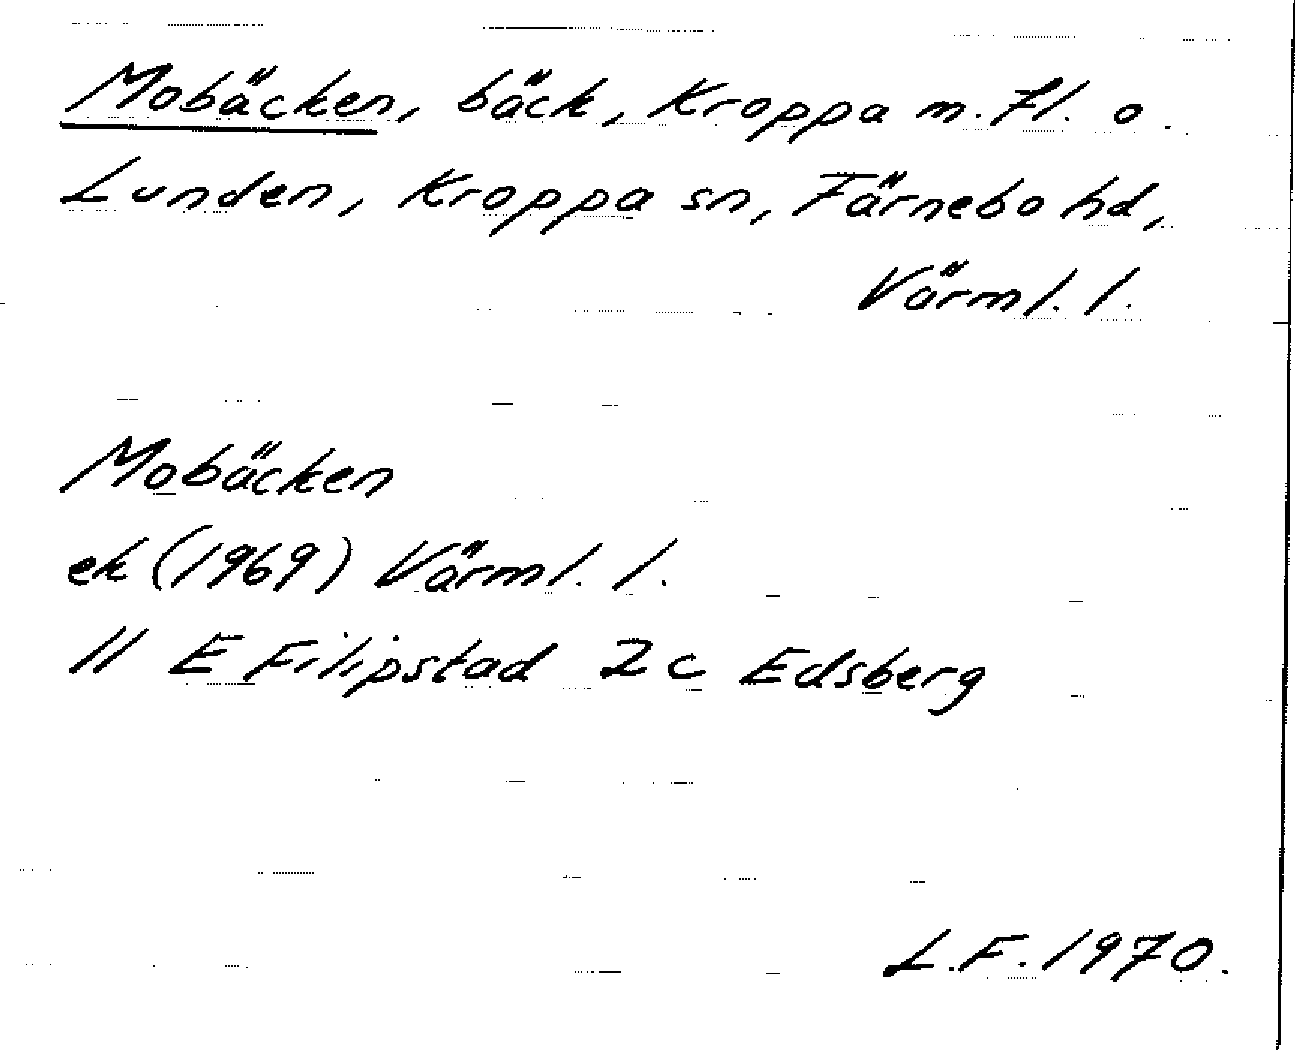 Mobäcken, bäck, Kroppa m. fl. o.
Lunden, Kroppa sn, Färnebo hd,
Värml. l.
Mobäcken
ek (1969) Värml. l.
11 E Filipstad 2c Edsberg
L.F. 1970.